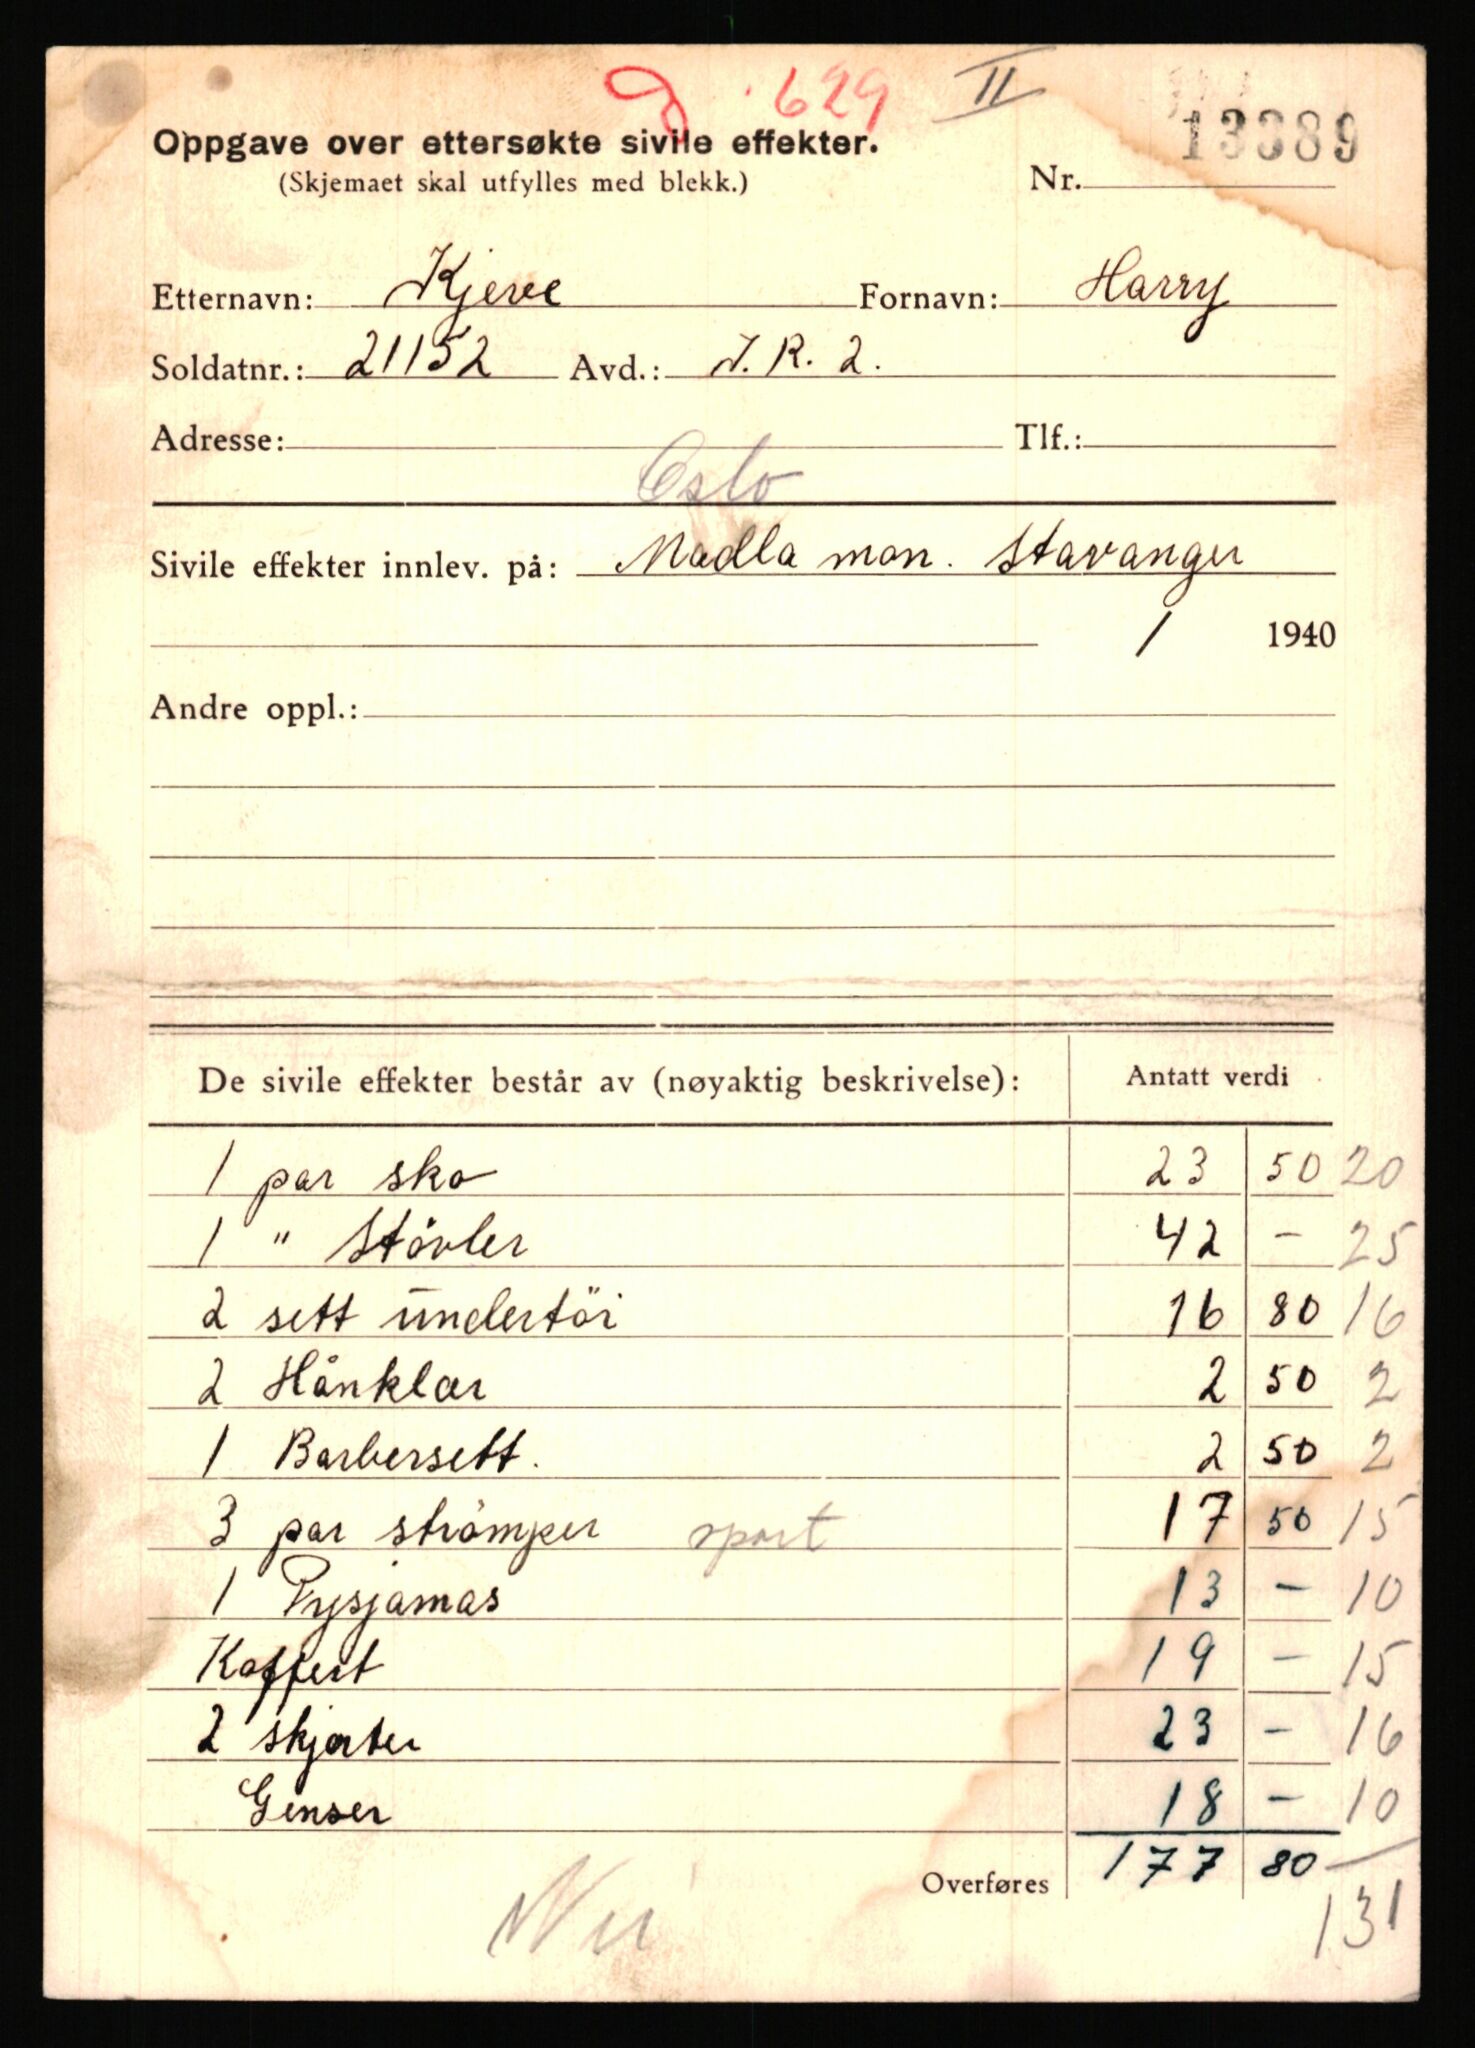 629 II
13389
Oppgave over ettersøkte sivile effekter.
(Skjemaet skal utfylles med blekk.)
Nr.
Etternavn: Kjeve Fornavn: Harry
Soldatnr.: 21152 Avd.: J. R. 2.
Adresse: Tlf.:
Oslo
Sivile effekter innlev. på: Madla mon. Stavanger
/ 1940
Andre oppl.:
De sivile effekter består av (nøyaktig beskrivelse): Antatt verdi
1 par sko 23 50 20
1 " Støvler 42 - 25
2 sett undertöi 16 80 16
2 Hånklær 2 50 2
1 Barbersett. 2 50 2
3 par strömper sport 17 50 15
1 Pysjamas 13 - 10
Koffert 19 - 15
2 skjorter 23 - 16
Genser 18 - 10
Overføres 177 80
131